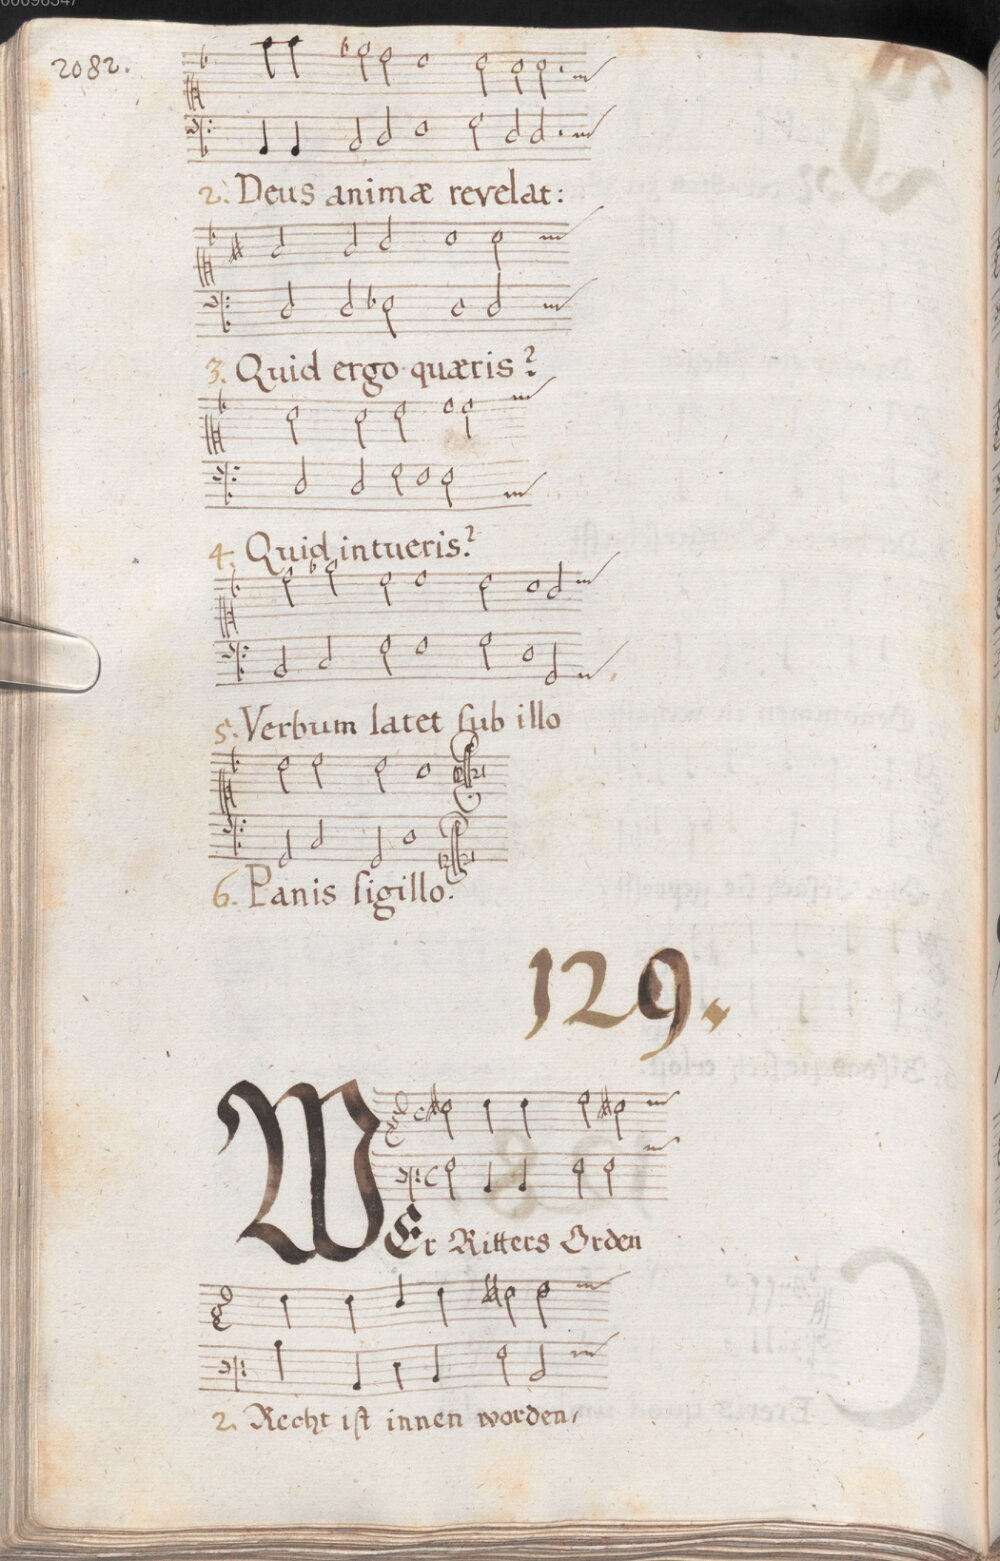 2082.
2. Deus animæ revelat:
3. Quid ergo quæris?
4. Quid intueris?
5. Verbum latet ſub illo
6. Panis ſigillo.
129.
WEr Ritters Orden
2. Recht iſt innen worden/